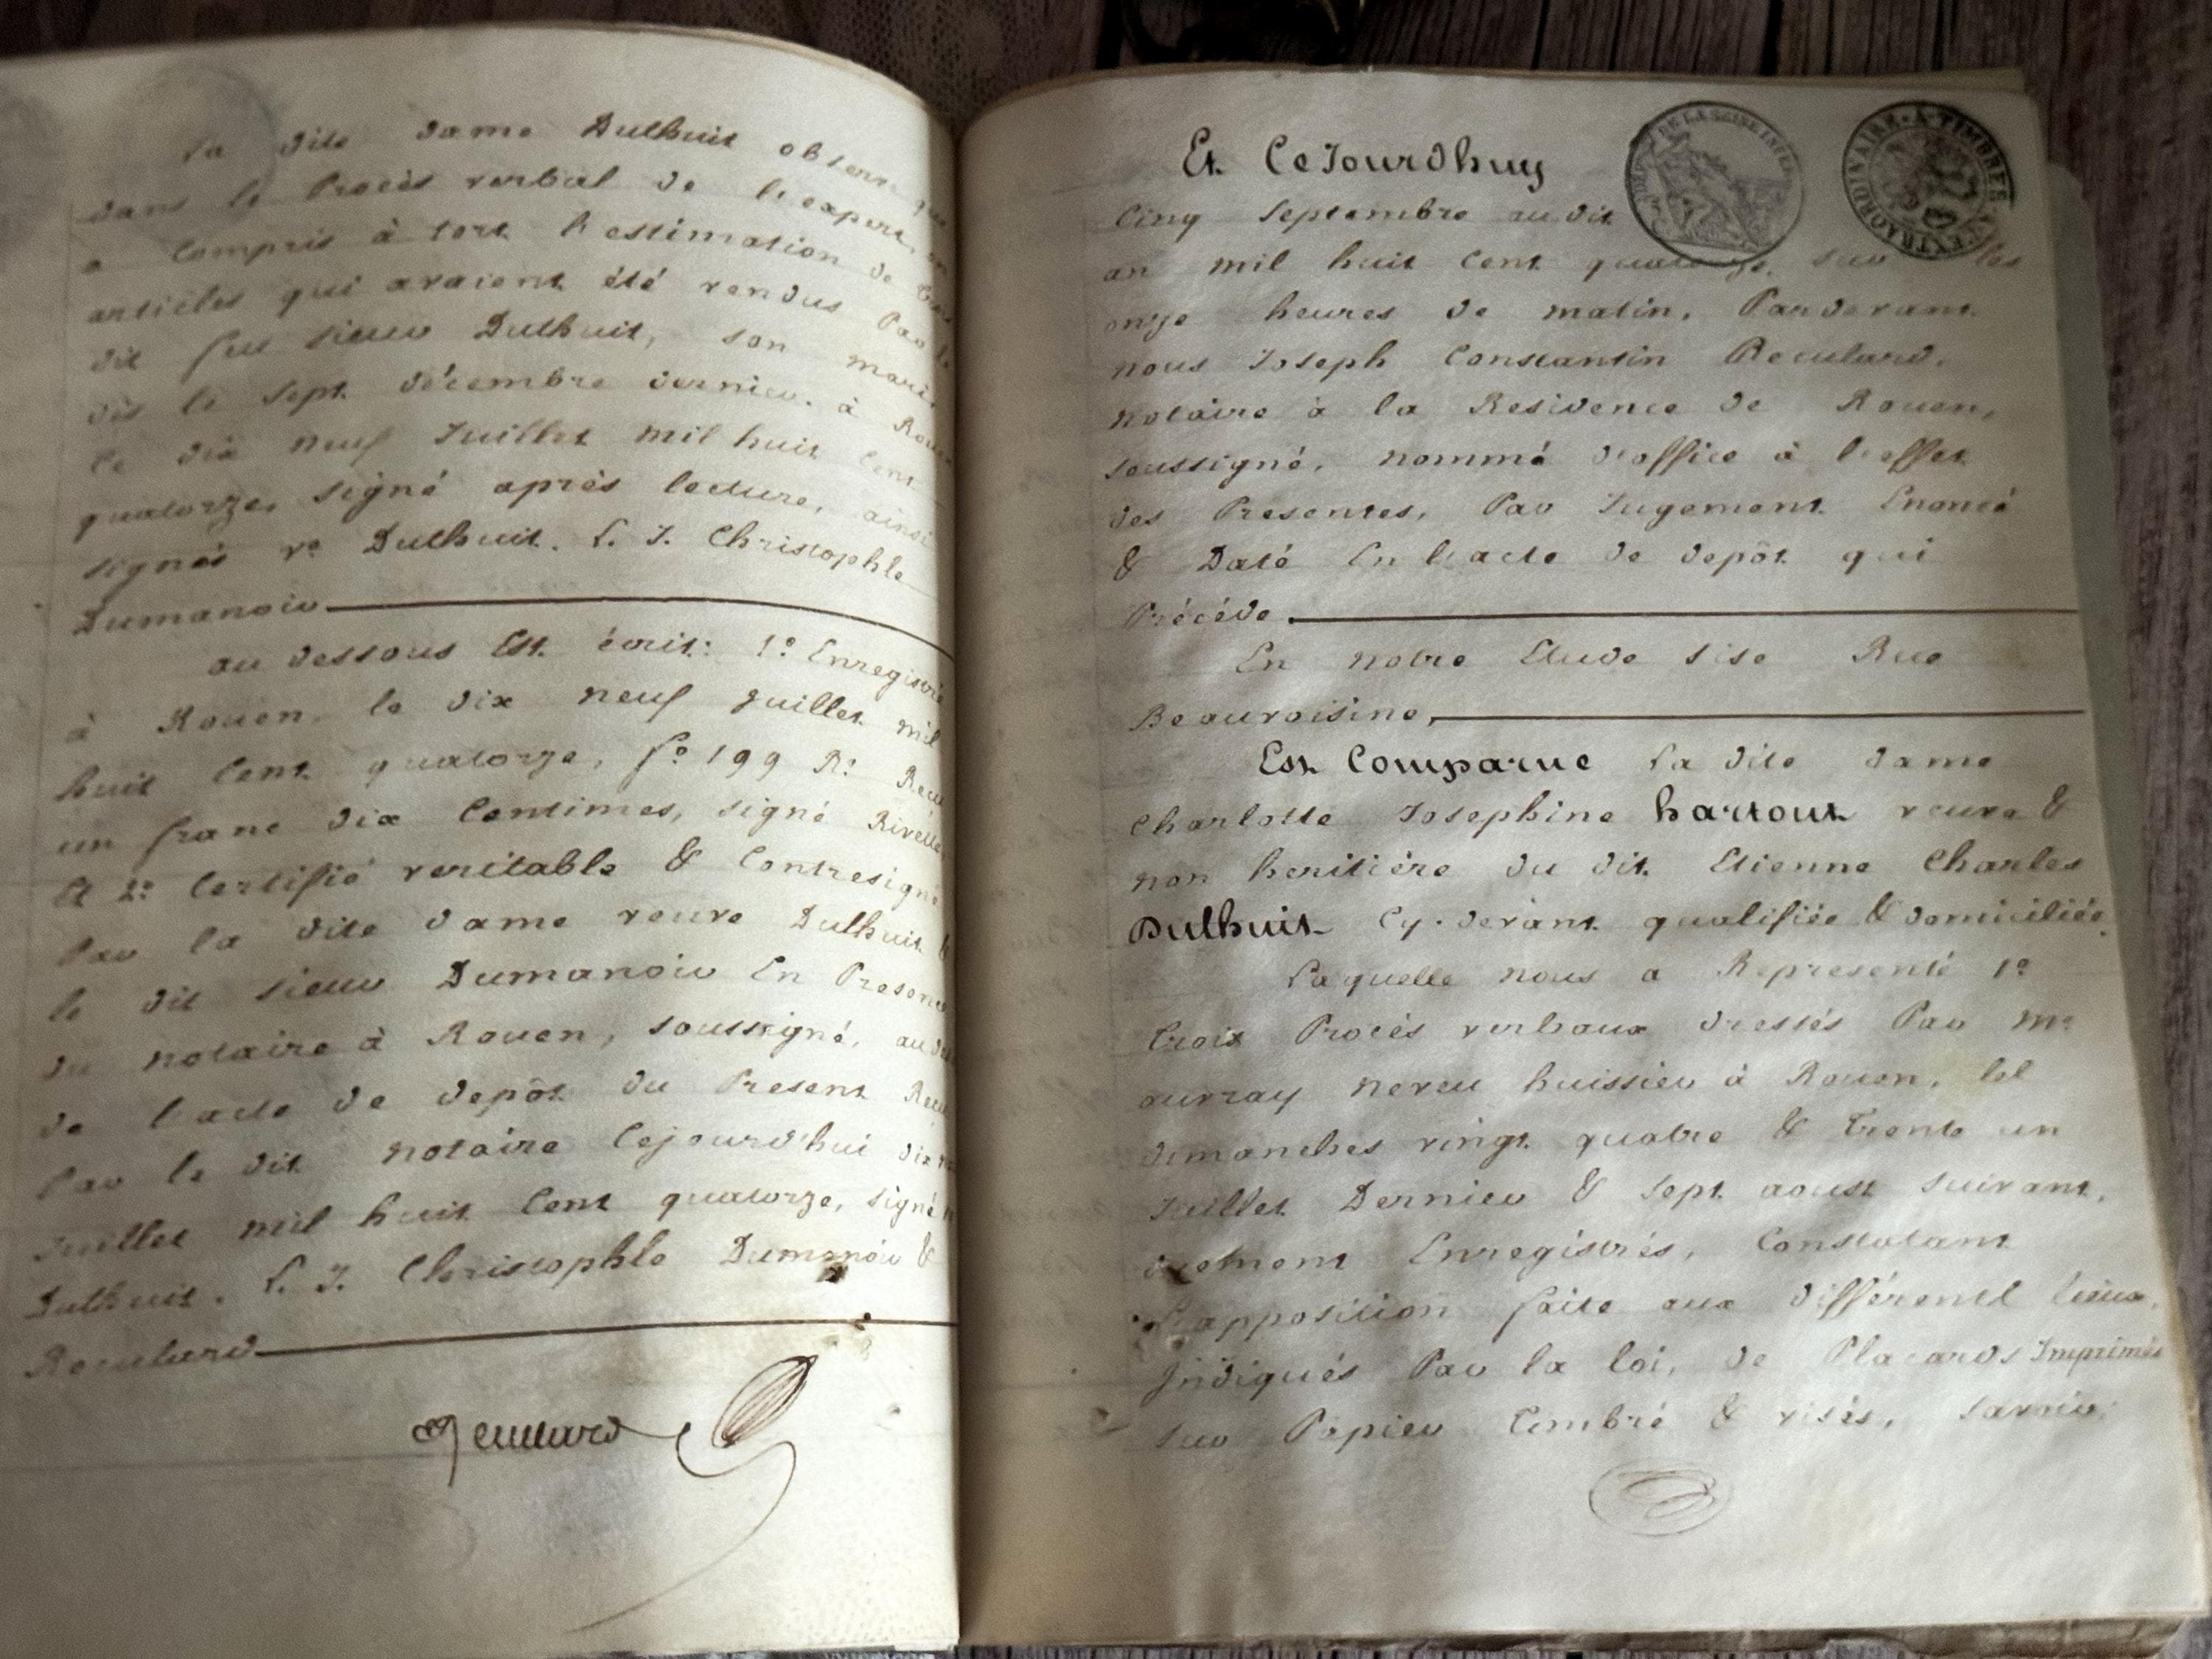 La dite dame Dulhuit observe que
dans le Procès verbal de l'expert, on
a Compris à tort l'estimation de
articles qui avaient été rendus Par le
dit feu sieur Dulhuit, son mari,
dès le sept décembre dernier. à Rouen
le dix neuf Juillet mil huit Cent
quatorze, signé après lecture, ainsi
signés ve Dulhuit. L. J. Christophle
Dumanoir
au dessous Est écrit: 1º Enregistré
à Rouen, le dix neuf juillet mil
huit Cent quatorze, fº 199 Rº Reçu
un franc dix Centimes, signé
Et 2º Certifié veritable & Contresigné
Par la dite dame veuve Dulhuit &
le dit sieur Dumanoir En Presence
du notaire à Rouen, soussigné, au desir
de l'acte de depôt du Present
Par le dit notaire Cejourd'hui dix neuf
Juillet mil huit Cent quatorze, signé
Dulhuit. L. J. Christophle Dumanoir &
Reculard
Reculard
Et CeJourdhuy
Cinq Septembre au dit
an mil huit Cent quatorze, sur les
onze heures de matin, Pardevant
nous Joseph Constantin Reculard,
notaire à la Residence de Rouen,
soussigné, nommé d'office à l'effet
des Presentes, Par Jugement Enoncé
& Daté En l'acte de depôt qui
Précéde.
En notre Etude sise Rue
Beauvoisine,
Est Comparue La dite dame
Charlotte Josephine hartout veuve &
non heritière du dit Etienne Charles
Dulhuit Cy-devant qualifiée & domiciliée.
Laquelle nous a Representé 1º
trois Procès verbaux dressés Par Me
auvray neveu huissier à Rouen, les
dimanches vingt quatre & trente un
Juillet Dernier & sept aoust suivant,
duement Enregistrés, Constatant
L'apposition faite aux différents lieux,
Jndiqués Par la loi, de Placards Imprimés
sur Papier timbré & visés, savoir:
A TIMBRER